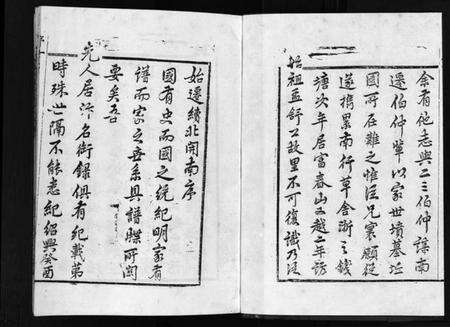 余有他志與二三伯仲謀南
遷伯仲輩以家世墳墓近
國所在難之惟從兄寰願從
遂携累南行草舍浙之錢
塘次年居富春山又越二年訪
始祖孟舒公故里不可復識乃泛
始遷績北開南序
國有史而國之統紀明家有
譜而家之世系具譜牒所関
要矣吾
先人居汴名銜錄俱有紀載第
時殊世隔不能悉紀紹興癸酉